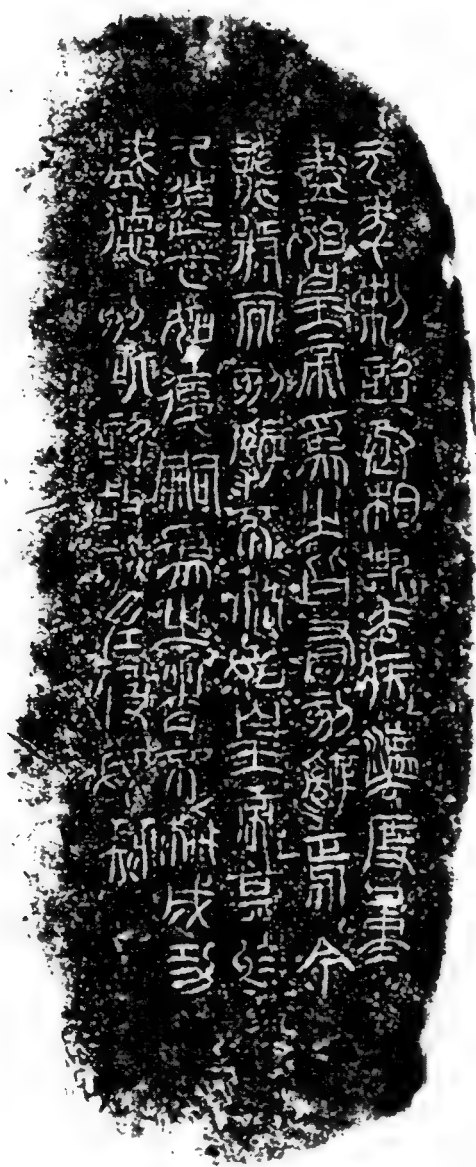 元年制詔丞相斯去疾灋度量
盡始皇帝爲之皆有刻辭焉今
襲號而刻辭不稱始皇帝其於
久遠也如後嗣爲之者不稱成功
盛德刻此詔故刻左使毋疑